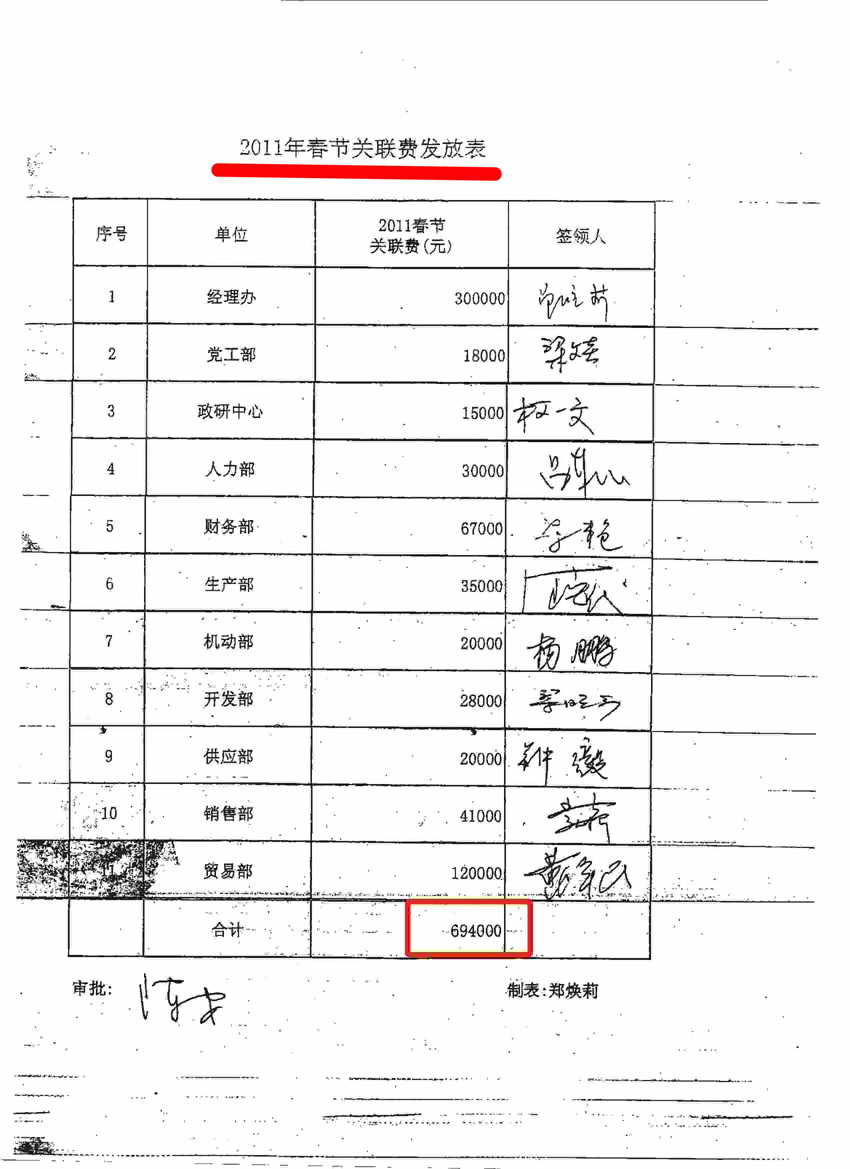 2011年春节关联费发放表
序号 单位 2011春节 签领人
关联费(元)
1 经理办 300000
2 党工部 18000 梁文
3 政研中心 15000 权一文
4 人力部 30000
5 财务部 67000 李艳
6 生产部 35000
7 机动部 20000 杨鹏
8 开发部 28000
9 供应部 20000 钟毅
10 销售部 41000
贸易部 120000
合计 694000
审批: 制表:郑焕莉